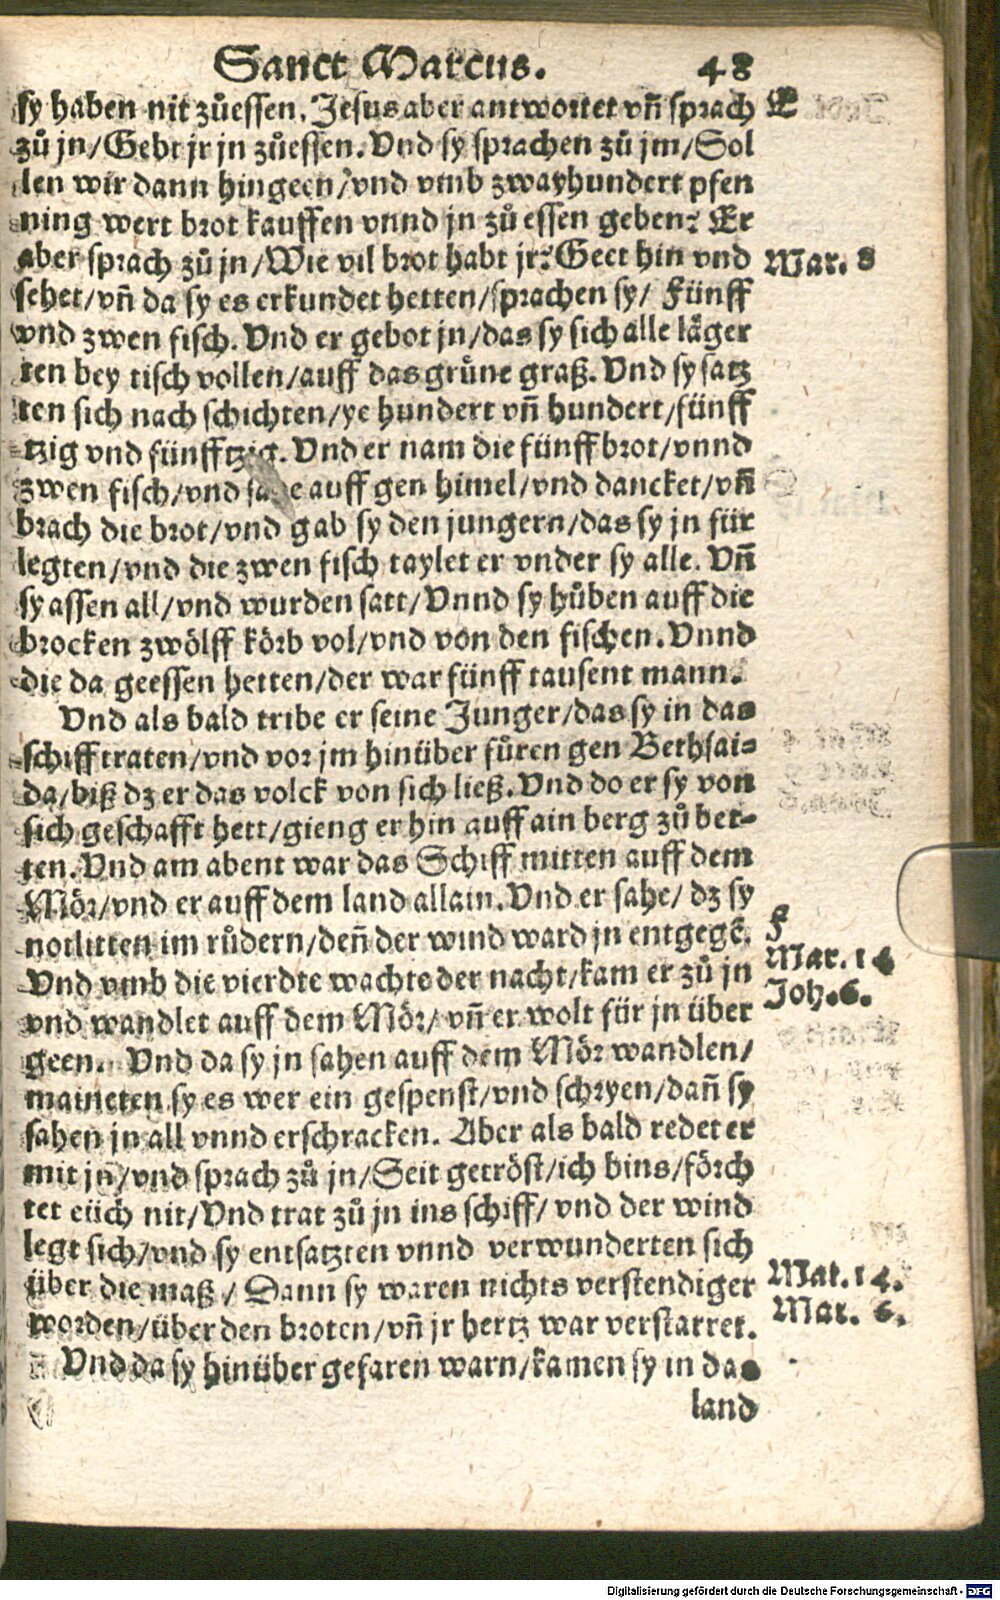 Sanct Marcus. 48
sy haben nit zůessen. Jesus aber antwortet vñ sprach E
zů jn/Gebt jr jn zůessen. Vnd sy sprachen zů jm/Sol
len wir dann hingeen/vnd vmb zwayhundert pfen
ning wert brot kauffen vnnd jn zů essen geben? Er
aber sprach zů jn/Wie vil brot habt jr? Geet hin vnd Mar. 8
sehet/vñ da sy es erkundet hetten/sprachen sy/ Fünff
vnd zwen fisch. Vnd er gebot jn/das sy sich alle läger
ten bey tisch vollen/auff das grůne graß. Vnd sy satz
ten sich nach schichten/ye hundert vñ hundert/fünff
tzig vnd fünfftzig. Vnd er nam die fünff brot/vnnd
zwen fisch/vnd sahe auff gen himel/vnd dancket/vñ
brach die brot/vnd gab sy den jungern/das sy jn für
legten/vnd die zwen fisch taylet er vnder sy alle. Vñ
sy assen all/vnd wurden satt/Vnnd sy hůben auff die
brocken zwölff körb vol/vnd von den fischen. Vnnd
die da geessen hetten/der war fünff tausent mann.
Vnd als bald tribe er seine Junger/das sy in das
schiff traten/vnd vor jm hinüber fůren gen Bethsai=
da/biß dz er das volck von sich ließ. Vnd do er sy von
sich geschafft hett/gieng er hin auff ain berg zů bet=
ten. Vnd am abent war das Schiff mitten auff dem
Mör/vnd er auff dem land allain. Vnd er sahe/ dz sy
notlitten im růdern/deñ der wind ward jn entgegē. F
Vnd vmb die vierdte wachte der nacht/kam er zů jn Mar. 14
vnd wandlet auff dem Mör/ vñ er wolt für jn über Joh. 6.
geen. Vnd da sy jn sahen auff dem Mör wandlen/
maineten sy es wer ein gespenst/vnd schryen/dañ sy
sahen jn all vnnd erschracken. Aber als bald redet er
mit jn/vnd sprach zů jn/Seit getröst/ich bins/förch
tet eüch nit/Vnd trat zů jn ins schiff/ vnd der wind
legt sich/vnd sy entsatzten vnnd verwunderten sich
über die maß/ Dann sy waren nichts verstendiger Mat. 14.
worden/über den broten/vñ jr hertz war verstarret. Mar. 6.
Vnd da sy hinüber gefaren warn/kamen sy in das
land
Digitalisierung gefördert durch die Deutsche Forschungsgemeinschaft - DFG